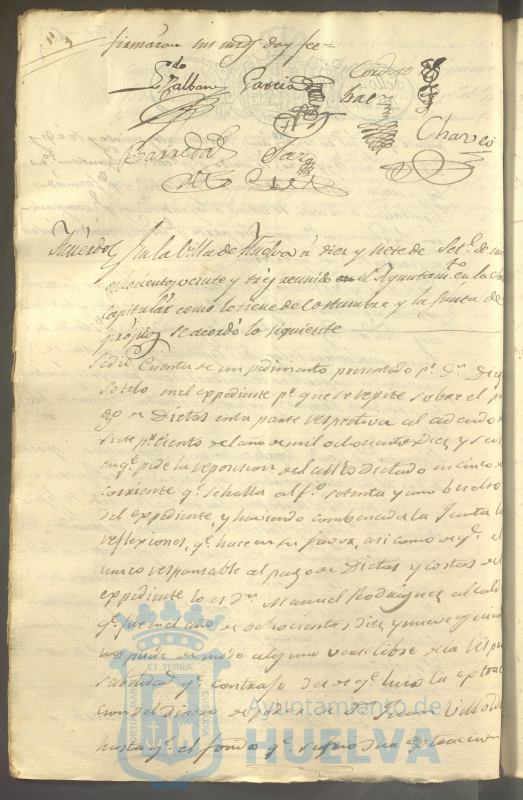 firmaron sus mrds doy fee=
Zalbane Garcia Cordero
Baez
Chaves
Barreda Jara
Acuerdo En la Villa de Huelva á diez y siete de Set.e de mil
ochocientos veinte y seis reunido el Ayuntam.to en la Sala
capitular como lo tiene de costumbre y la Junta de
propios se acordó lo siguiente
Se dió cuenta de un pedimento presentado p.r D.n Diego
Sotelo en el expediente p.r que se repite sobre el pa
go de Dietas en la parte respectiva al adeudo
siete p.r ciento del año de mil ochocientos diez y seis
en q.e pide la reposicion del auto dictado en cinco
corriente q.e se halla al f.o setenta y uno buelto
del expediente y haviendo combencido la Junta las
reflexiones, q.e hace en su favor, asi como de q.e el
unico responsable al pago de Dietas y costas del
expediente lo es D.n Manuel Rodriguez alcalde
q.e fue en el año de ochocientos diez y nueve quien
no puede de modo alguno verse libre de la respon
sabilidad q.e contrajo desde q.e hizo la extrac
cion del dinero de poder de D.n Juan
hasta q.e el fondo q.e sufrio su extraccion
PORTUS MARIS ET TERRÆ CUSTODIA
Ayuntamiento de
HUELVA